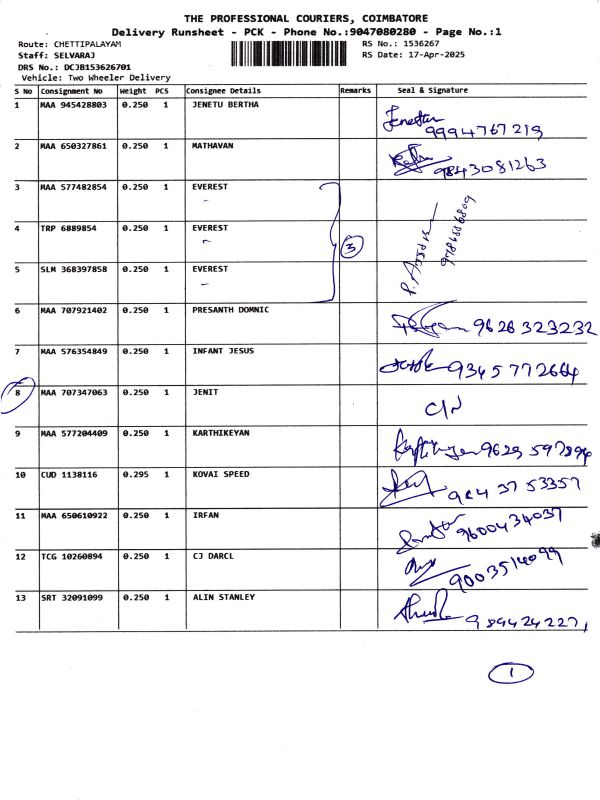 THE PROFESSIONAL COURIERS, COIMBATORE
Delivery Runsheet - PCK - Phone No.:9047080280 - Page No.:1
Route: CHETTIPALAYAM RS No.: 1536267
Staff: SELVARAJ RS Date: 17-Apr-2025
DRS No.: DCJB153626701
Vehicle: Two Wheeler Delivery
S No Consignment No Weight PCS Consignee Details Remarks Seal & Signature
1 MAA 945428803 0.250 1 JENETU BERTHA
9994767219
2 MAA 650327861 0.250 1 MATHAVAN
9843081263
3 MAA 577482854 0.250 1 EVEREST
4 TRP 6889854 0.250 1 EVEREST
3
5 SLM 368397858 0.250 1 EVEREST
6 MAA 707921402 0.250 1 PRESANTH DOMNIC
9626323232
7 MAA 576354849 0.250 1 INFANT JESUS
9345772664
8 MAA 707347063 0.250 1 JENIT
C/N
9 MAA 577204409 0.250 1 KARTHIKEYAN
9629597894
10 CUD 1138116 0.295 1 KOVAI SPEED
9843753357
11 MAA 650610922 0.250 1 IRFAN
9600434037
12 TCG 10260894 0.250 1 CJ DARCL
9003514099
13 SRT 32091099 0.250 1 ALIN STANLEY
9894424227,
1